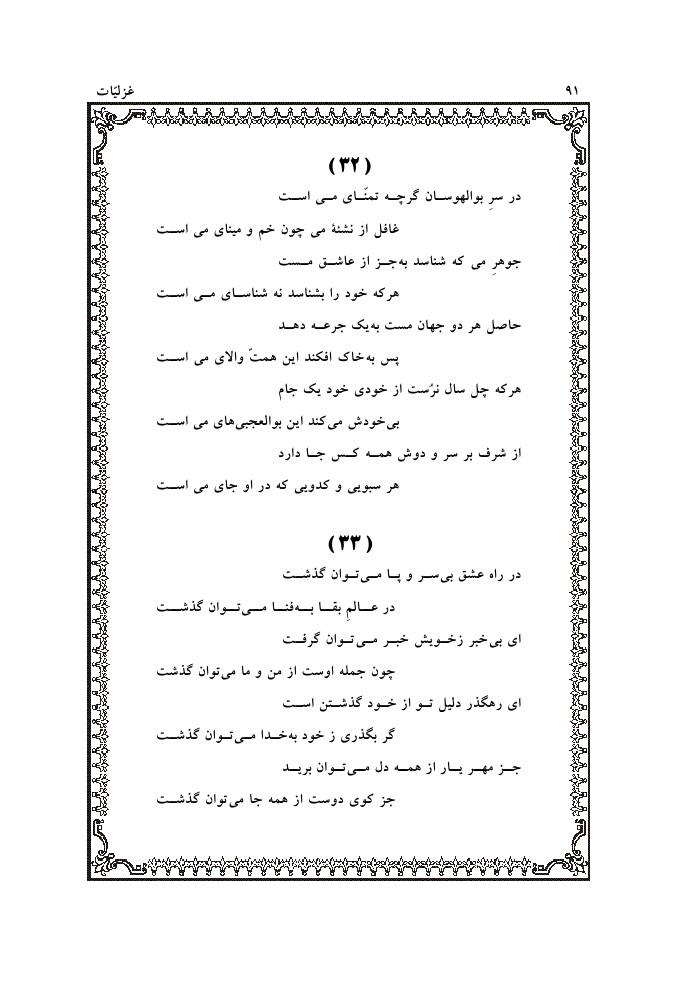 ۹۱ غزلیّات
(۳۲)
در سرِ بوالهوسان گرچه تمنّای می است
غافل از نشئهٔ می چون خم و مینای می است
جوهرِ می که شناسد به‌جز از عاشق مست
هرکه خود را بشناسد نه شناسای می است
حاصل هر دو جهان مست به‌یک جرعه دهد
پس به‌خاک افکند این همتّ والای می است
هرکه چل سال نرُست از خودی خود یک جام
بی‌خودش می‌کند این بوالعجبی‌های می است
از شرف بر سر و دوش همه کس جا دارد
هر سبویی و کدویی که در او جای می است
(۳۳)
در راه عشق بی‌سر و پا می‌توان گذشت
در عالمِ بقا به‌فنا می‌توان گذشت
ای بی‌خبر زخویش خبر می‌توان گرفت
چون جمله اوست از من و ما می‌توان گذشت
ای رهگذر دلیل تو از خود گذشتن است
گر بگذری ز خود به‌خدا می‌توان گذشت
جز مهر یار از همه دل می‌توان برید
جز کوی دوست از همه جا می‌توان گذشت